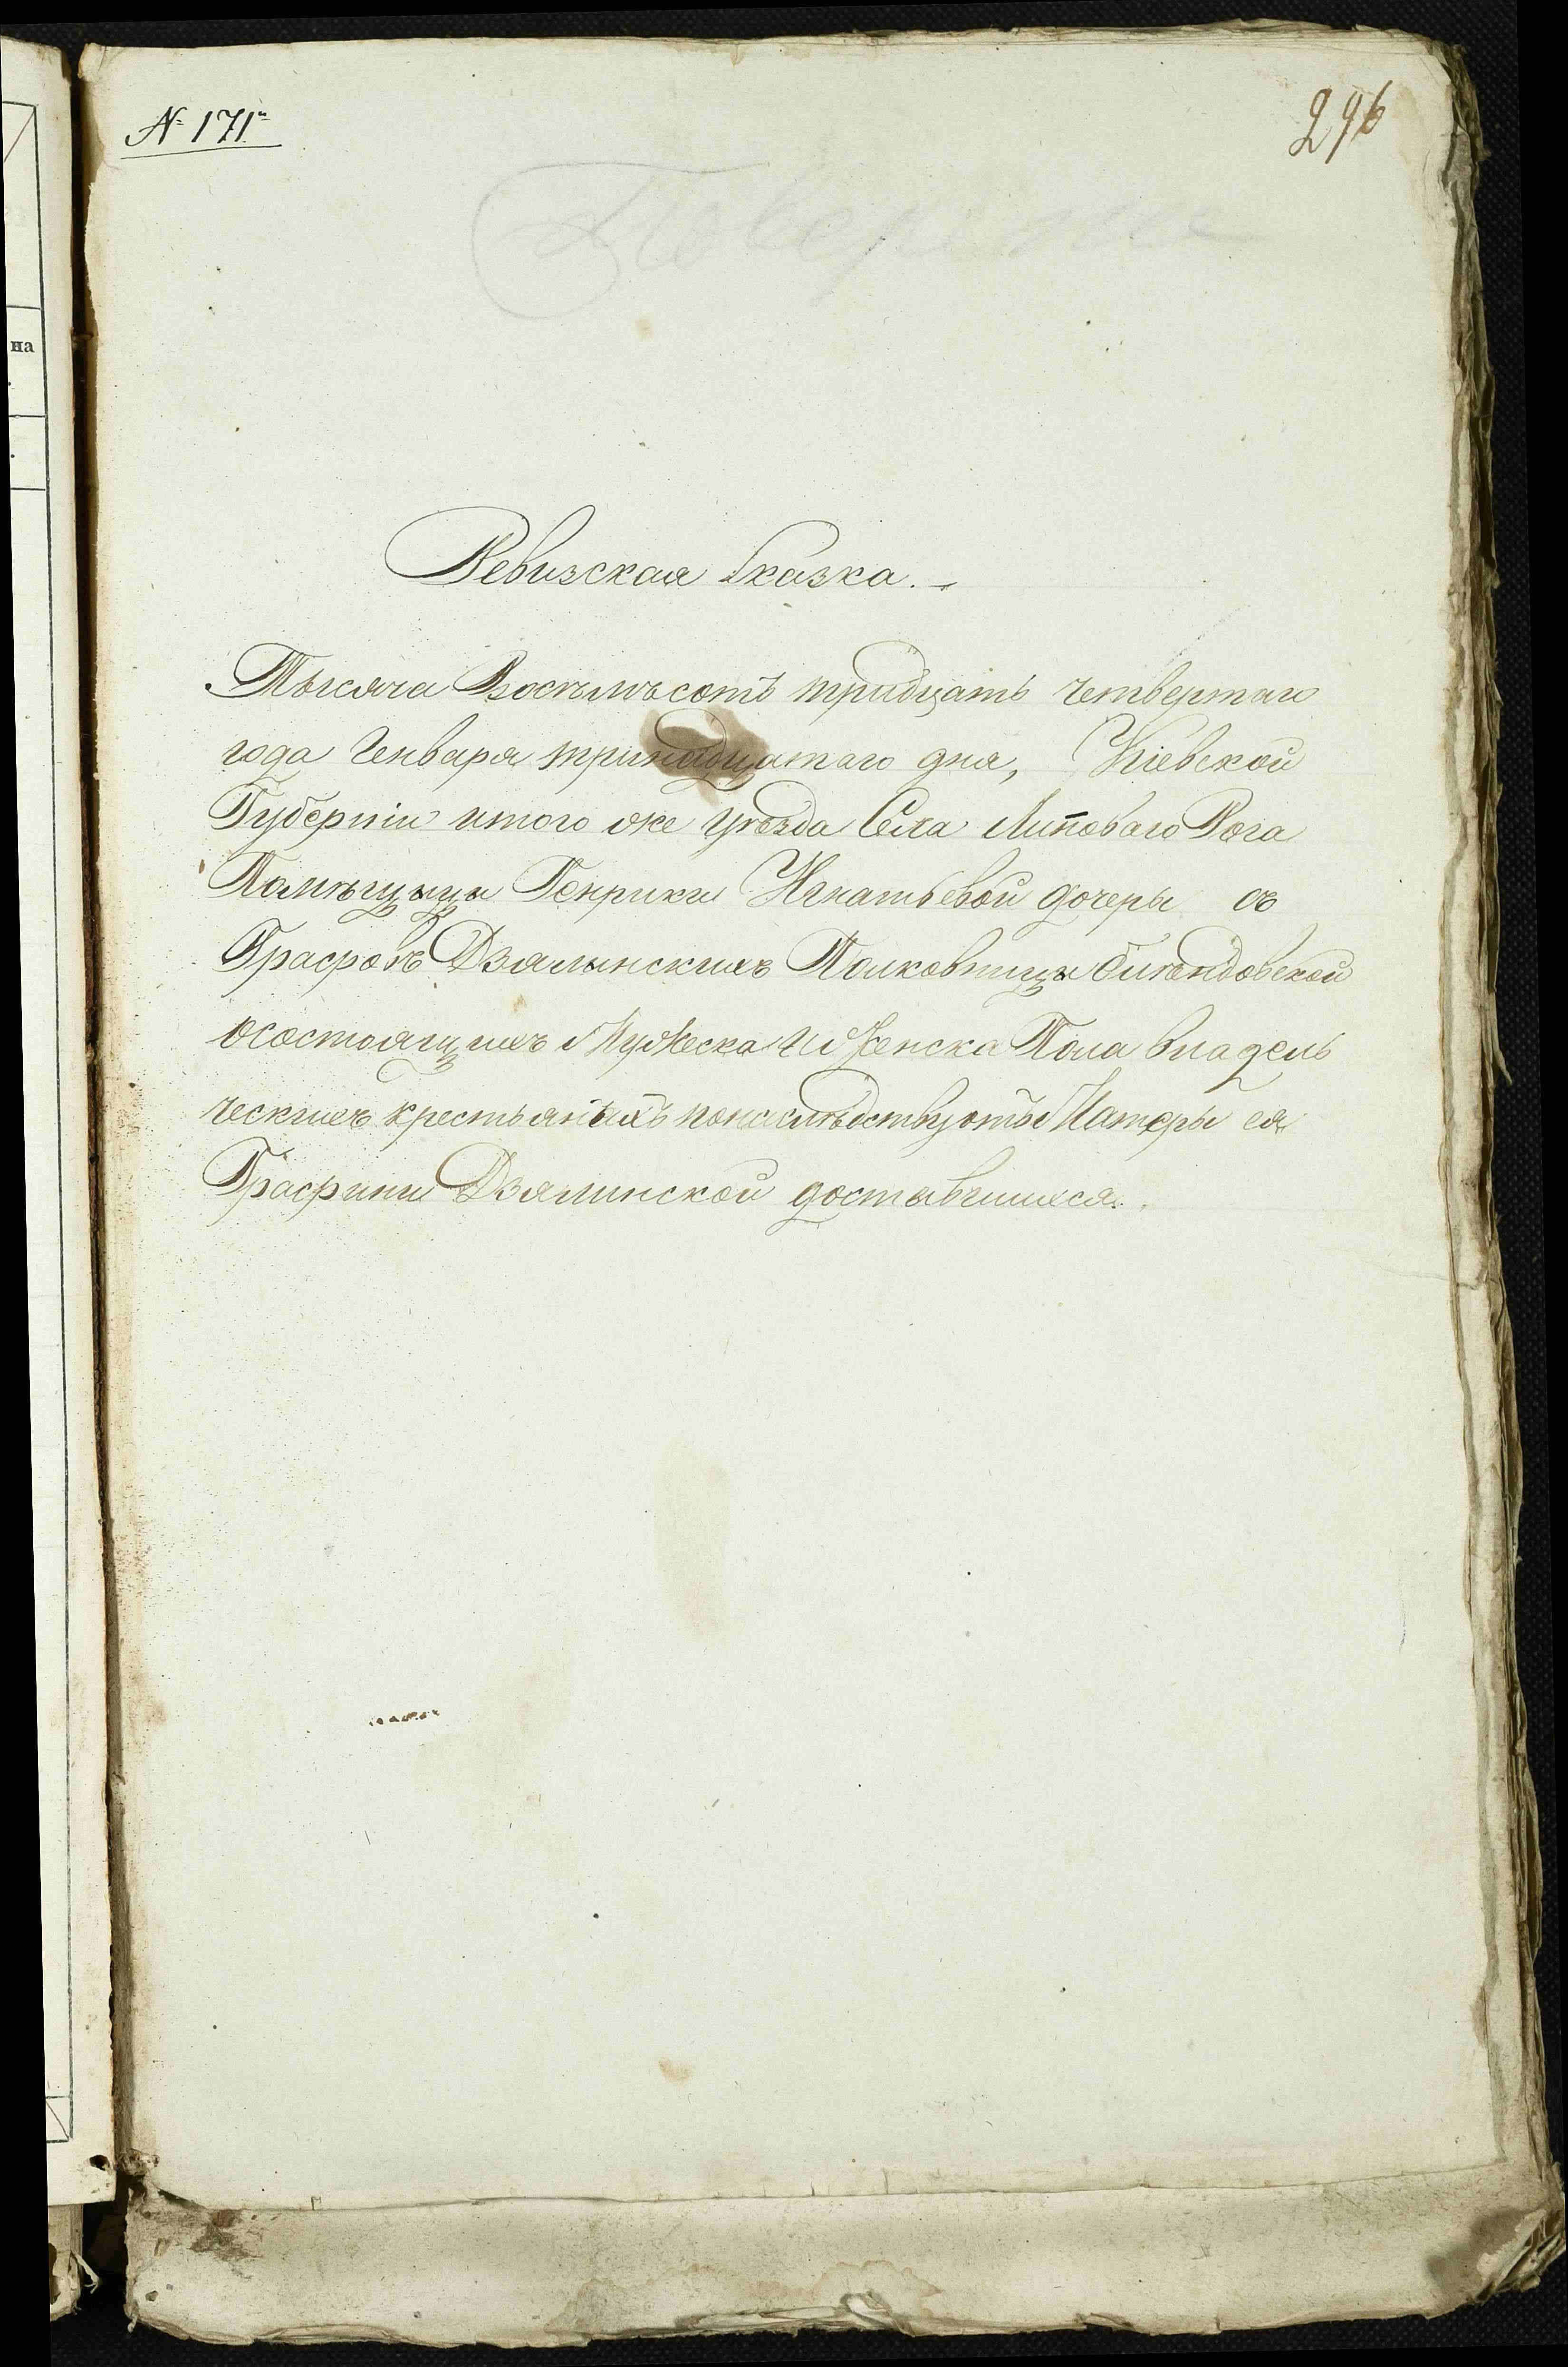 № 171й
296
Ревизская Сказка.
Тысяча Восѣмъсотъ тридцать четвертаго
года Генваря тринадцатаго дня, Кіевской
Губерніи итого же уѣзда Села Липоваго Рога
Помѣщицы Генрики Игнатьевой дочеры съ
Графовъ Дзялынскихъ Полковницы
осостоящихъ Мужеска и Женска Пола владель
ческихъ крестьянахъ понаслѣдству отъ Матеры ея
Графини Дзялинской доставшихся.
на